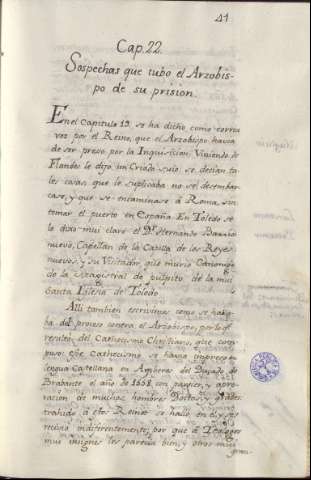 41
Cap. 22.
Sospechas que tubo el Arzobis-
po de su prision.
En el Capitulo 19. se ha dicho, como corria
voz por el Reino, que el Arzobispo havia
de ser preso por la Inquisicion. Viniendo de
Flandes le dijo un Criado suio, se decian ta-
les cosas, que le suplicaba no se desembar-
case, y que se encaminase á Roma, sin
tomar el puerto en España. En Toledo se
lo dixo mui claro el Mº Hernando
nuevo, Capellan de la Capilla de los Reyes
nuevos, y su Visitador, qᵉ murio Canonigo
de la Magistral de pulpito de la mui
Santa Iglesia de Toledo.
Alli tambien escrivimos como se habla
ba del proceso contra el Arzobispo, por lo qᵉ
resultó del Cathecismo Christiano, que com-
puso: este Cathecismo se havia impreso en
lengua Castellana en Amberes del Ducado de
Brabante el año de 1558. con y apro-
vacion de muchos hombres Doctos, y
trahido á estos Reinos se halló en el, y se
recibió indiferentemente, por que á Theologos
mui insignes les parecia bien, y otros mui
graves